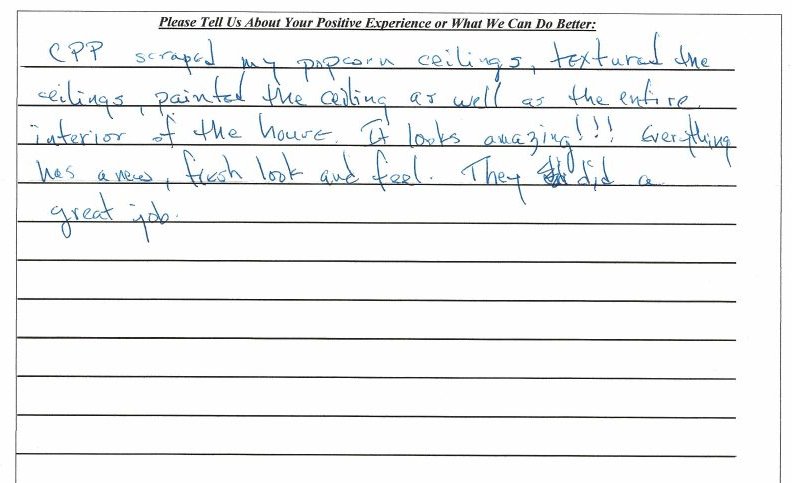 Please Tell Us About Your Positive Experience or What We Can Do Better:
CPP scraped my popcorn ceilings, textured the
ceilings, painted the ceiling as well as the entire
interior of the house. It looks amazing!!! Everything
has a new, fresh look and feel. They did a
great job.